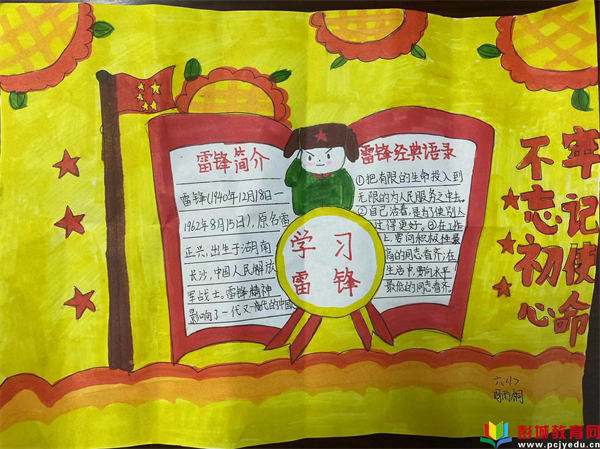 雷锋简介
雷锋(1940年12月18日—
1962年8月15日),原名雷
正兴,出生于湖南
长沙,中国人民解放
军战士。雷锋精神
影响了一代又一代的中国
学习
雷锋
雷锋经典语录
①把有限的生命投入到
无限的为人民服务之中去。
②自己活着,是为了使别人
过得更好。③在工作
上,要向积极性最
高的同志看齐,在
生活中,要向水平
最低的同志看齐。
牢记使命
不忘初心
六(1)
彭城教育网
www.pcjyedu.cn